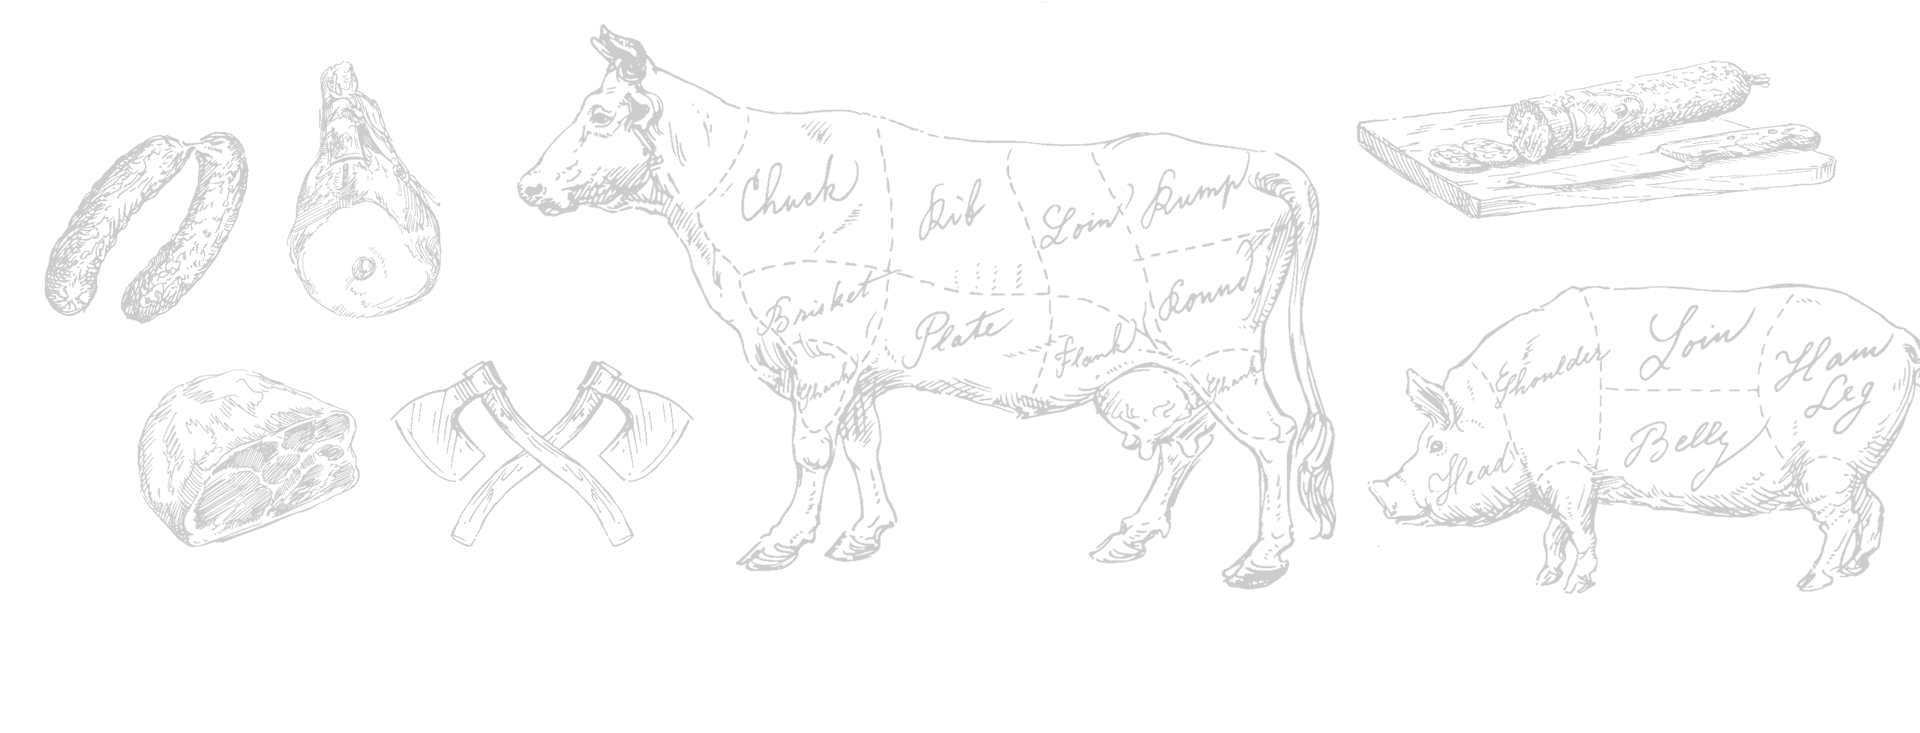 Chuck
Rib
Loin
Rump
Brisket
Plate
Flank
Round
Shank
Shank
Head
Shoulder
Loin
Belly
Ham
Leg